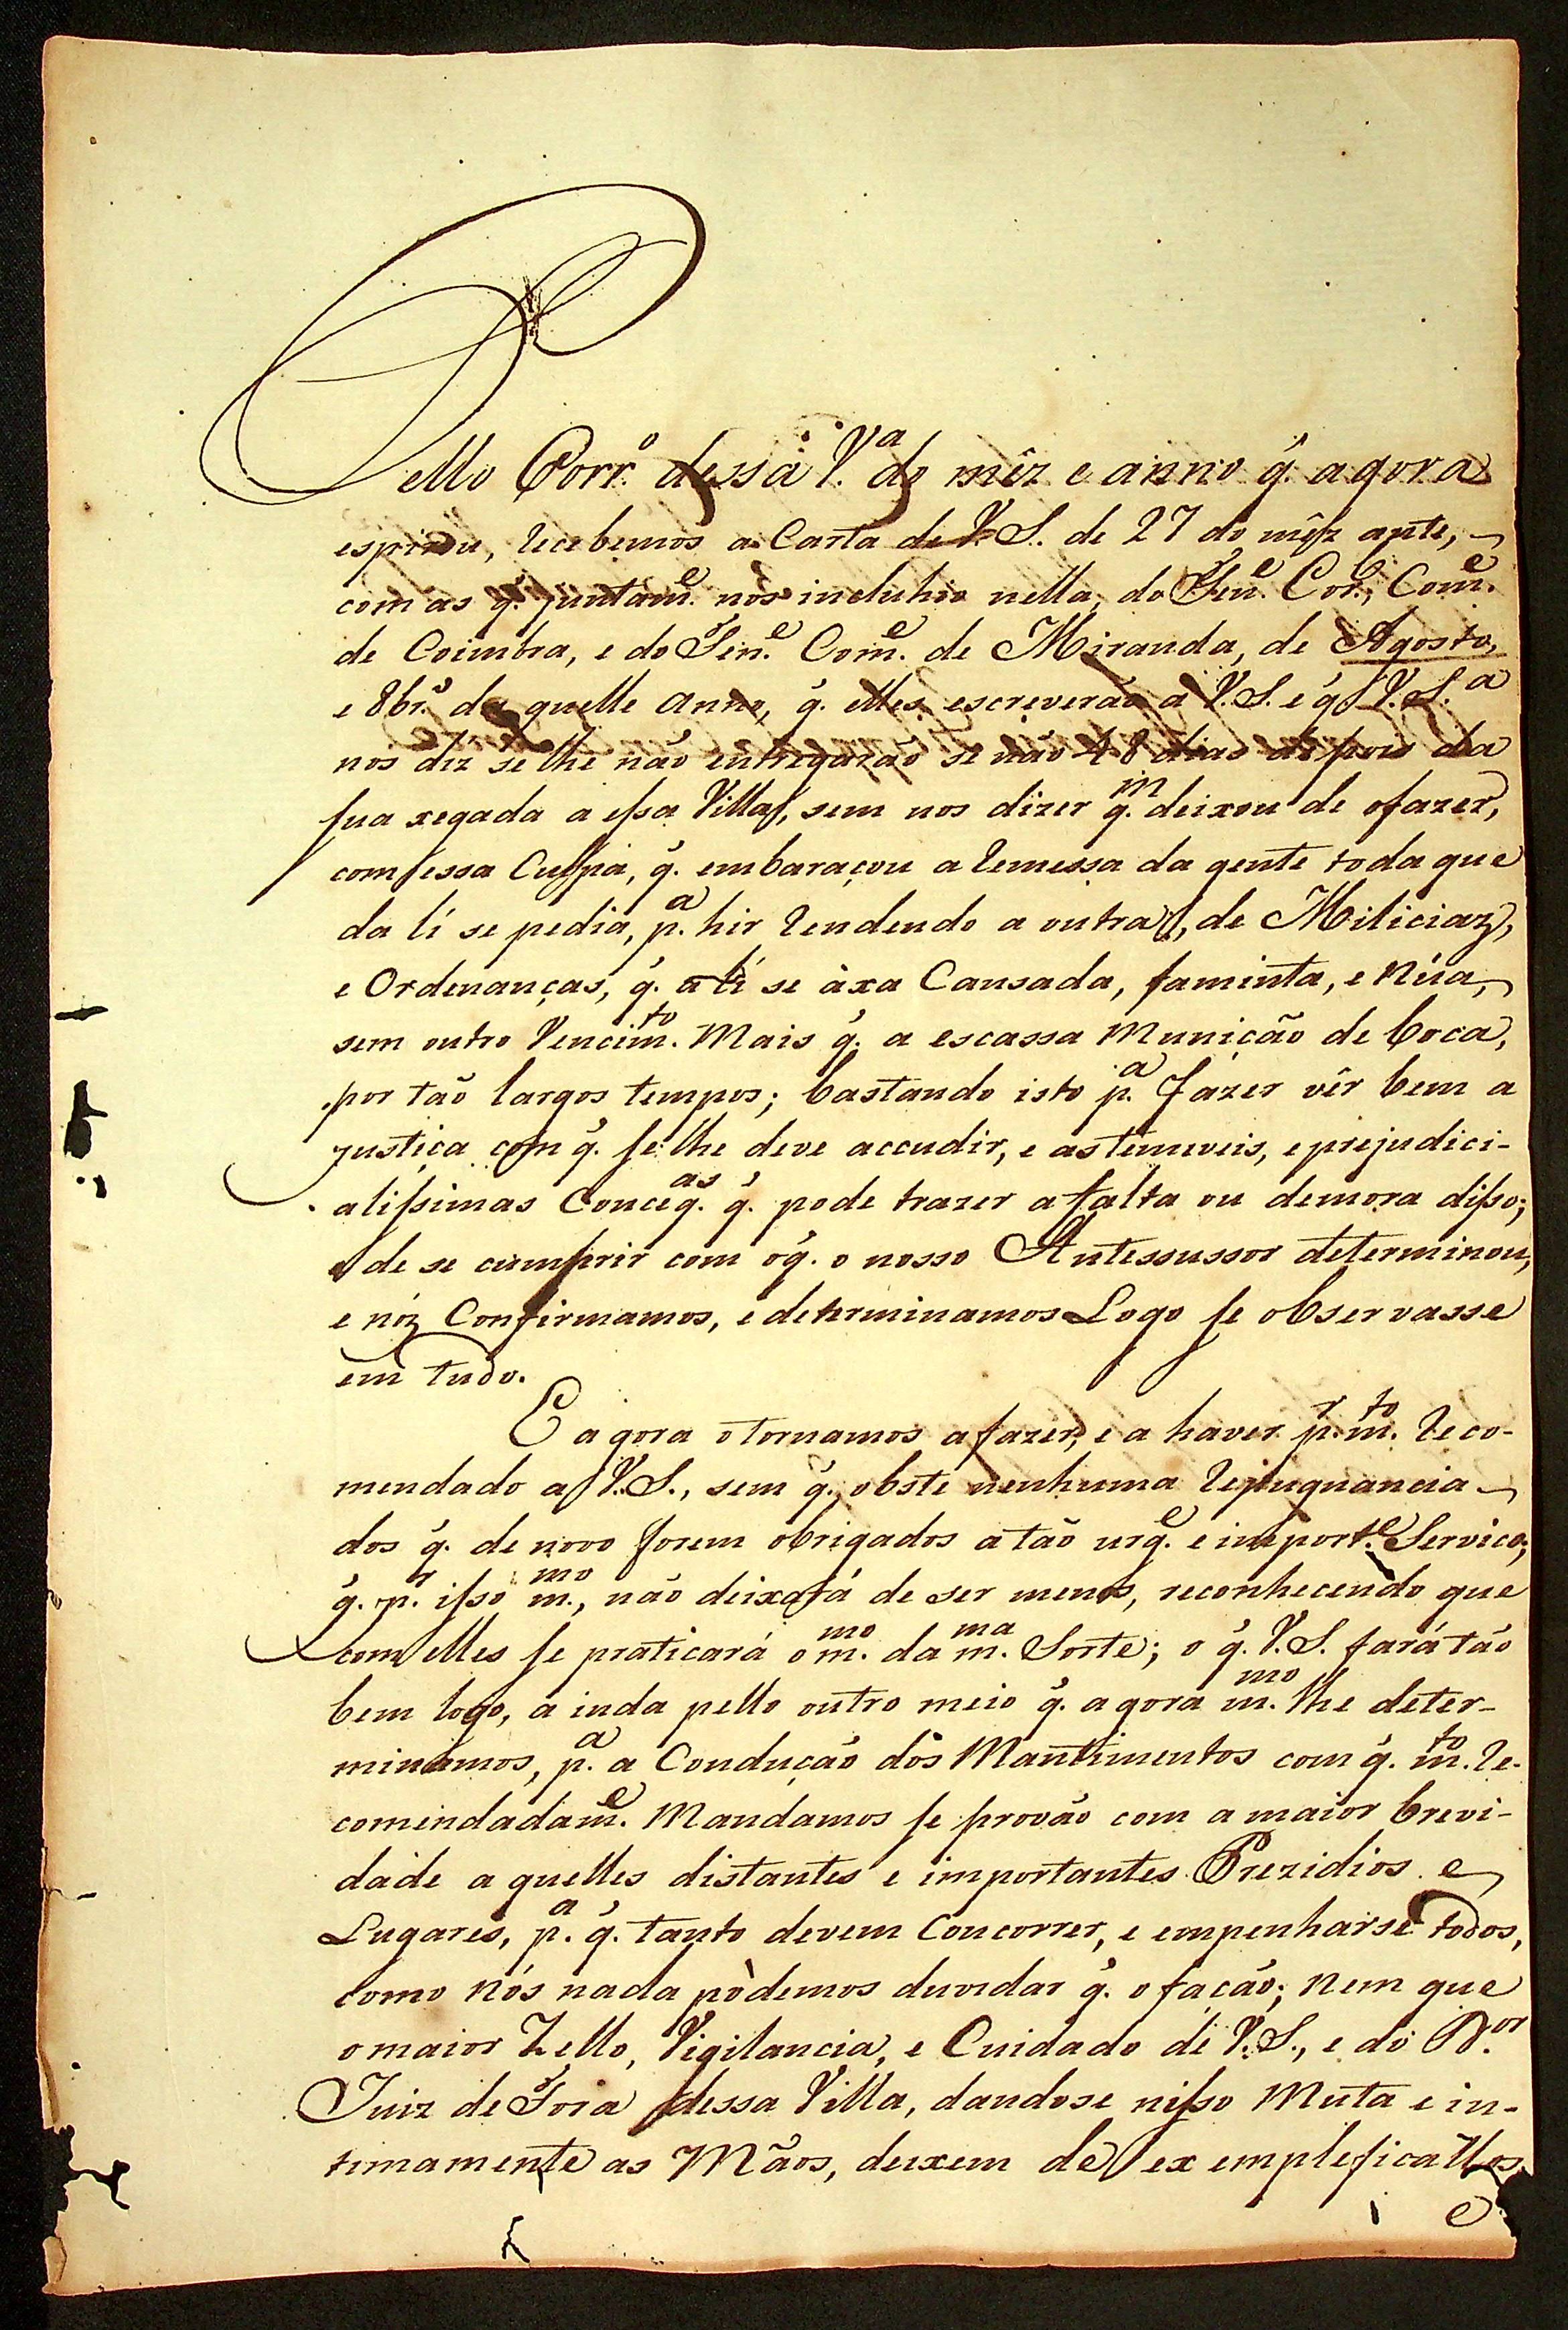 Pello Corr.º dessa V.ª do mêz e anno q̃. agora
espirou, recebemos a Carta de V.S. de 27 do mêz ante,
com as q̃. juntam.e nos incluhio nella, do Ten.e Cor.el, Com.e
de Coimbra, e do Ten.e Com.e de Miranda, de Agosto,
e 8br.º da quelle anno, q̃. elles escreverão a V.S. e q̃ V.S.ª
nos diz se lhe não entregarão se não 48 dias depois da
sua xegada a essa Villa, sem nos dizer q.m deixou de ofazer,
com essa Culpa, q̃. embaraçou a remessa da gente toda que
da li se pedia, p.ª hir rendendo a outra, de Miliciaz,
e Ordenanças, q̃. ali se àxa Cansada, faminta, e Núa,
sem outro Vencim.to Mais q̃. a escassa Munição de boca,
por tão largos tempos; bastando isto p.ª fazer vêr bem a
justiça com q̃. se lhe deve accudir, e as temiveis, e prejudici-
alissimas Conceq.as q̃. pode trazer a falta ou demora disso;
de se cumprir com oq̃. o nosso Antessussor determinou,
e nóz Confirmamos, e determinamos Logo se observasse
em tudo.
E agora o tornamos a fazer, e a haver p.r m.to reco-
mendado a V.S., sem q̃. obste nenhuma repugnancia
dos q̃. de novo forem obrigados a tão urg.e e import.e Servico;
q̃. p.r isso m.mo, não deixará de ser menos, reconhecendo que
com elles se praticará o m.mo da m.ma Sorte; o q̃. V.S. fará tão
bem logo, a inda pello outro meio q̃. agora m.mo lhe deter-
minamos, p.ª a Condução dos Mantimentos com q̃. m.to re-
comendadam.e Mandamos se provão com a maior brevi-
dade a quelles distantes e importantes Prezidios e
Lugares, p.ª q̃. tanto devem Concorrer, e empenharse todos,
como Nós nada pòdemos duvidar q̃. o facão; Nem que
o maior Zello, Vigilancia, e Cuidado de V.S., e do D.or
Juiz de Fora dessa Villa, dandose nisso Muta e in-
timamente as Mãos, deixem de exempleficallos
e